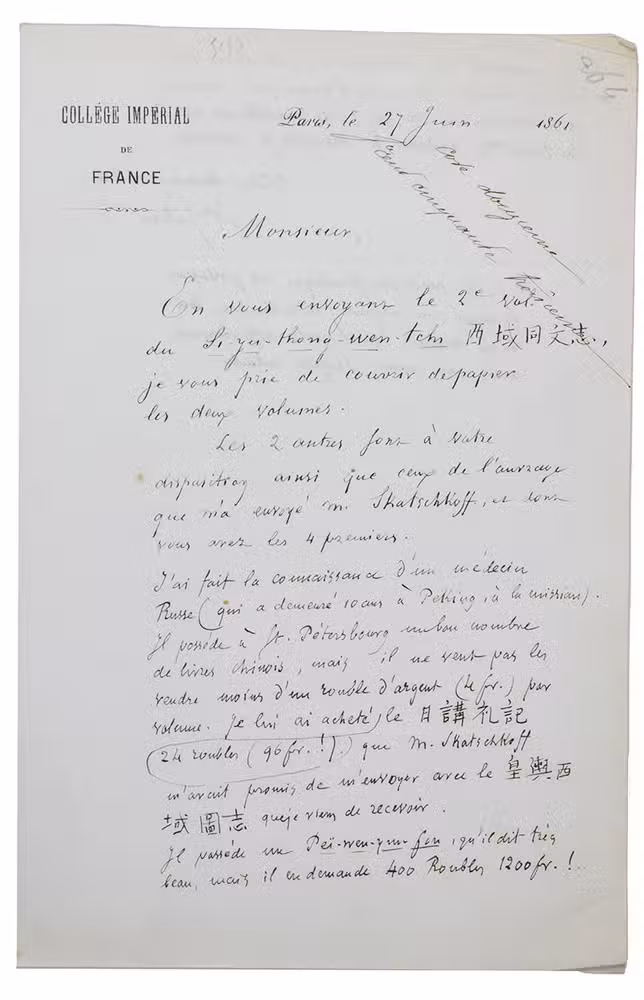 COLLÉGE IMPERIAL
DE
FRANCE
Paris, le 27 Juin 1861
cote douzieme
cent cinquante troisieme
Monsieur
En vous envoyant le 2e vol.
du Si-yu-thong-wen-tchi 西域同文志,
je vous prie de couvrir de papier
les deux volumes.
Les 2 autres sont à votre
disposition ainsi que ceux de l'ouvrage
que m'a envoyé M. Skatschkoff, et dont
vous avez les 4 premiers.
J'ai fait la connaissance d'un médecin
Russe (qui a demeuré 10 ans à Peking, à la mission).
Il possède à St. Pétersbourg un bon nombre
de livres chinois, mais il ne veut pas les
vendre moins d'un rouble d'argent (4 fr.) par
volume. Je lui ai acheté le 日講礼記
(24 roubles (96 fr.!)) que M. Skatschkoff
m'avait promis de m'envoyer avec le 皇輿西
域圖志 que je viens de recevoir.
Il possède un Peï-wen-yun-fou, qu'il dit très
beau, mais il en demande 400 Roubles 1200 fr.!